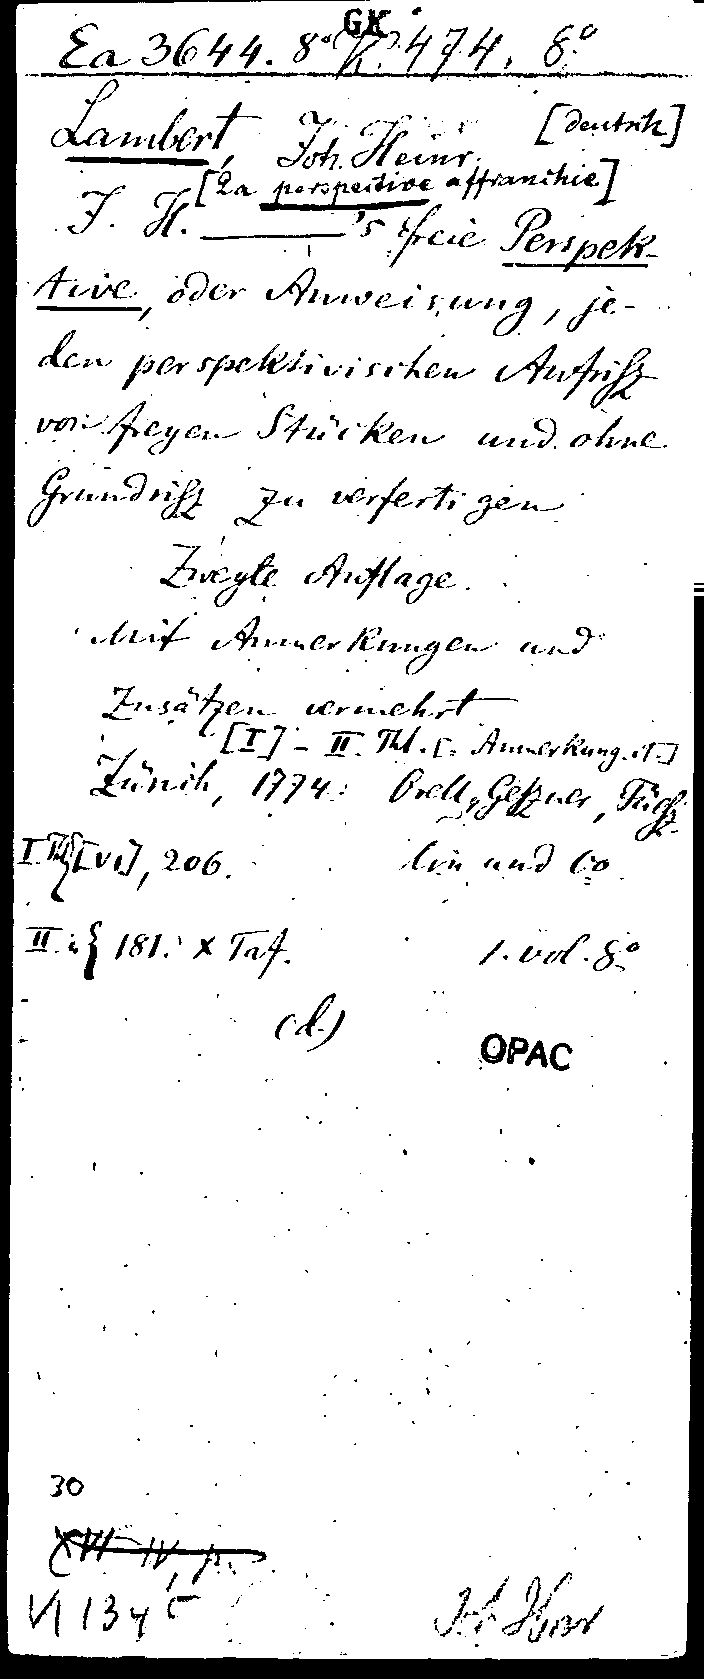 GK
Ea 3644. 8° K. 474. 8°
Lambert, Joh. Heinr. [deutsch]
[La perspective affranchie]
J. H. ———'s freie Perspek-
tive, oder Anweisung, je-
den perspektivischen Aufriß
von freyen Stücken und ohne
Grundriß zu verfertigen
Zweyte Auflage.
Mit Anmerkungen und
Zusätzen vermehrt
[I] - II. Thl. [= Anmerkung. et.]
Zürich, 1774. Orell, Geßner, Füeß-
I. Thl { [VI], 206. lin und Co
II. " { 181. X Taf. 1. vol. 8°
(d.)
OPAC
30
XVI IV, p.
VI 134